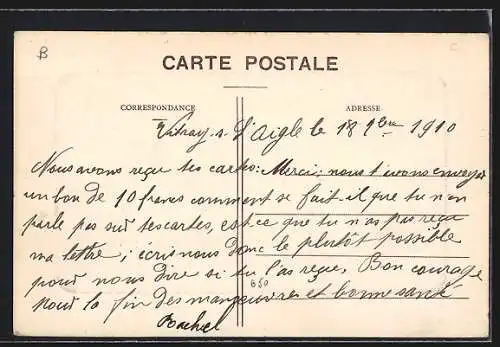 B
CARTE POSTALE
CORRESPONDANCE
ADRESSE
Vitray-s-l'Aigle le 18 9bre 1910
Nous avons reçu tes cartes: Merci; nous t'avons envoyé
un bon de 10 francs comment se fait-il que tu n'en
parle pas sur tes cartes, est-ce que tu n'as pas reçu
ma lettre; écris nous donc le plutôt possible
pour nous dire si tu l'as reçue. Bon courage
pour la fin des manœuvres et bonne santé
650
Rachel